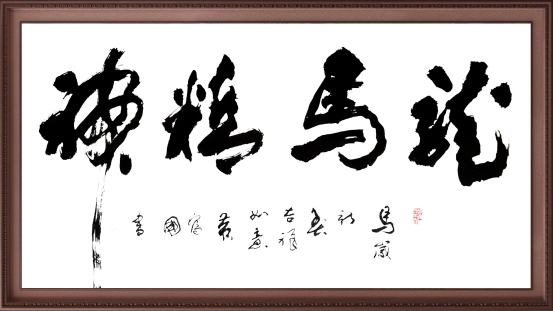 龍馬精神
馬歲
初春
吉祥
如意
國
書